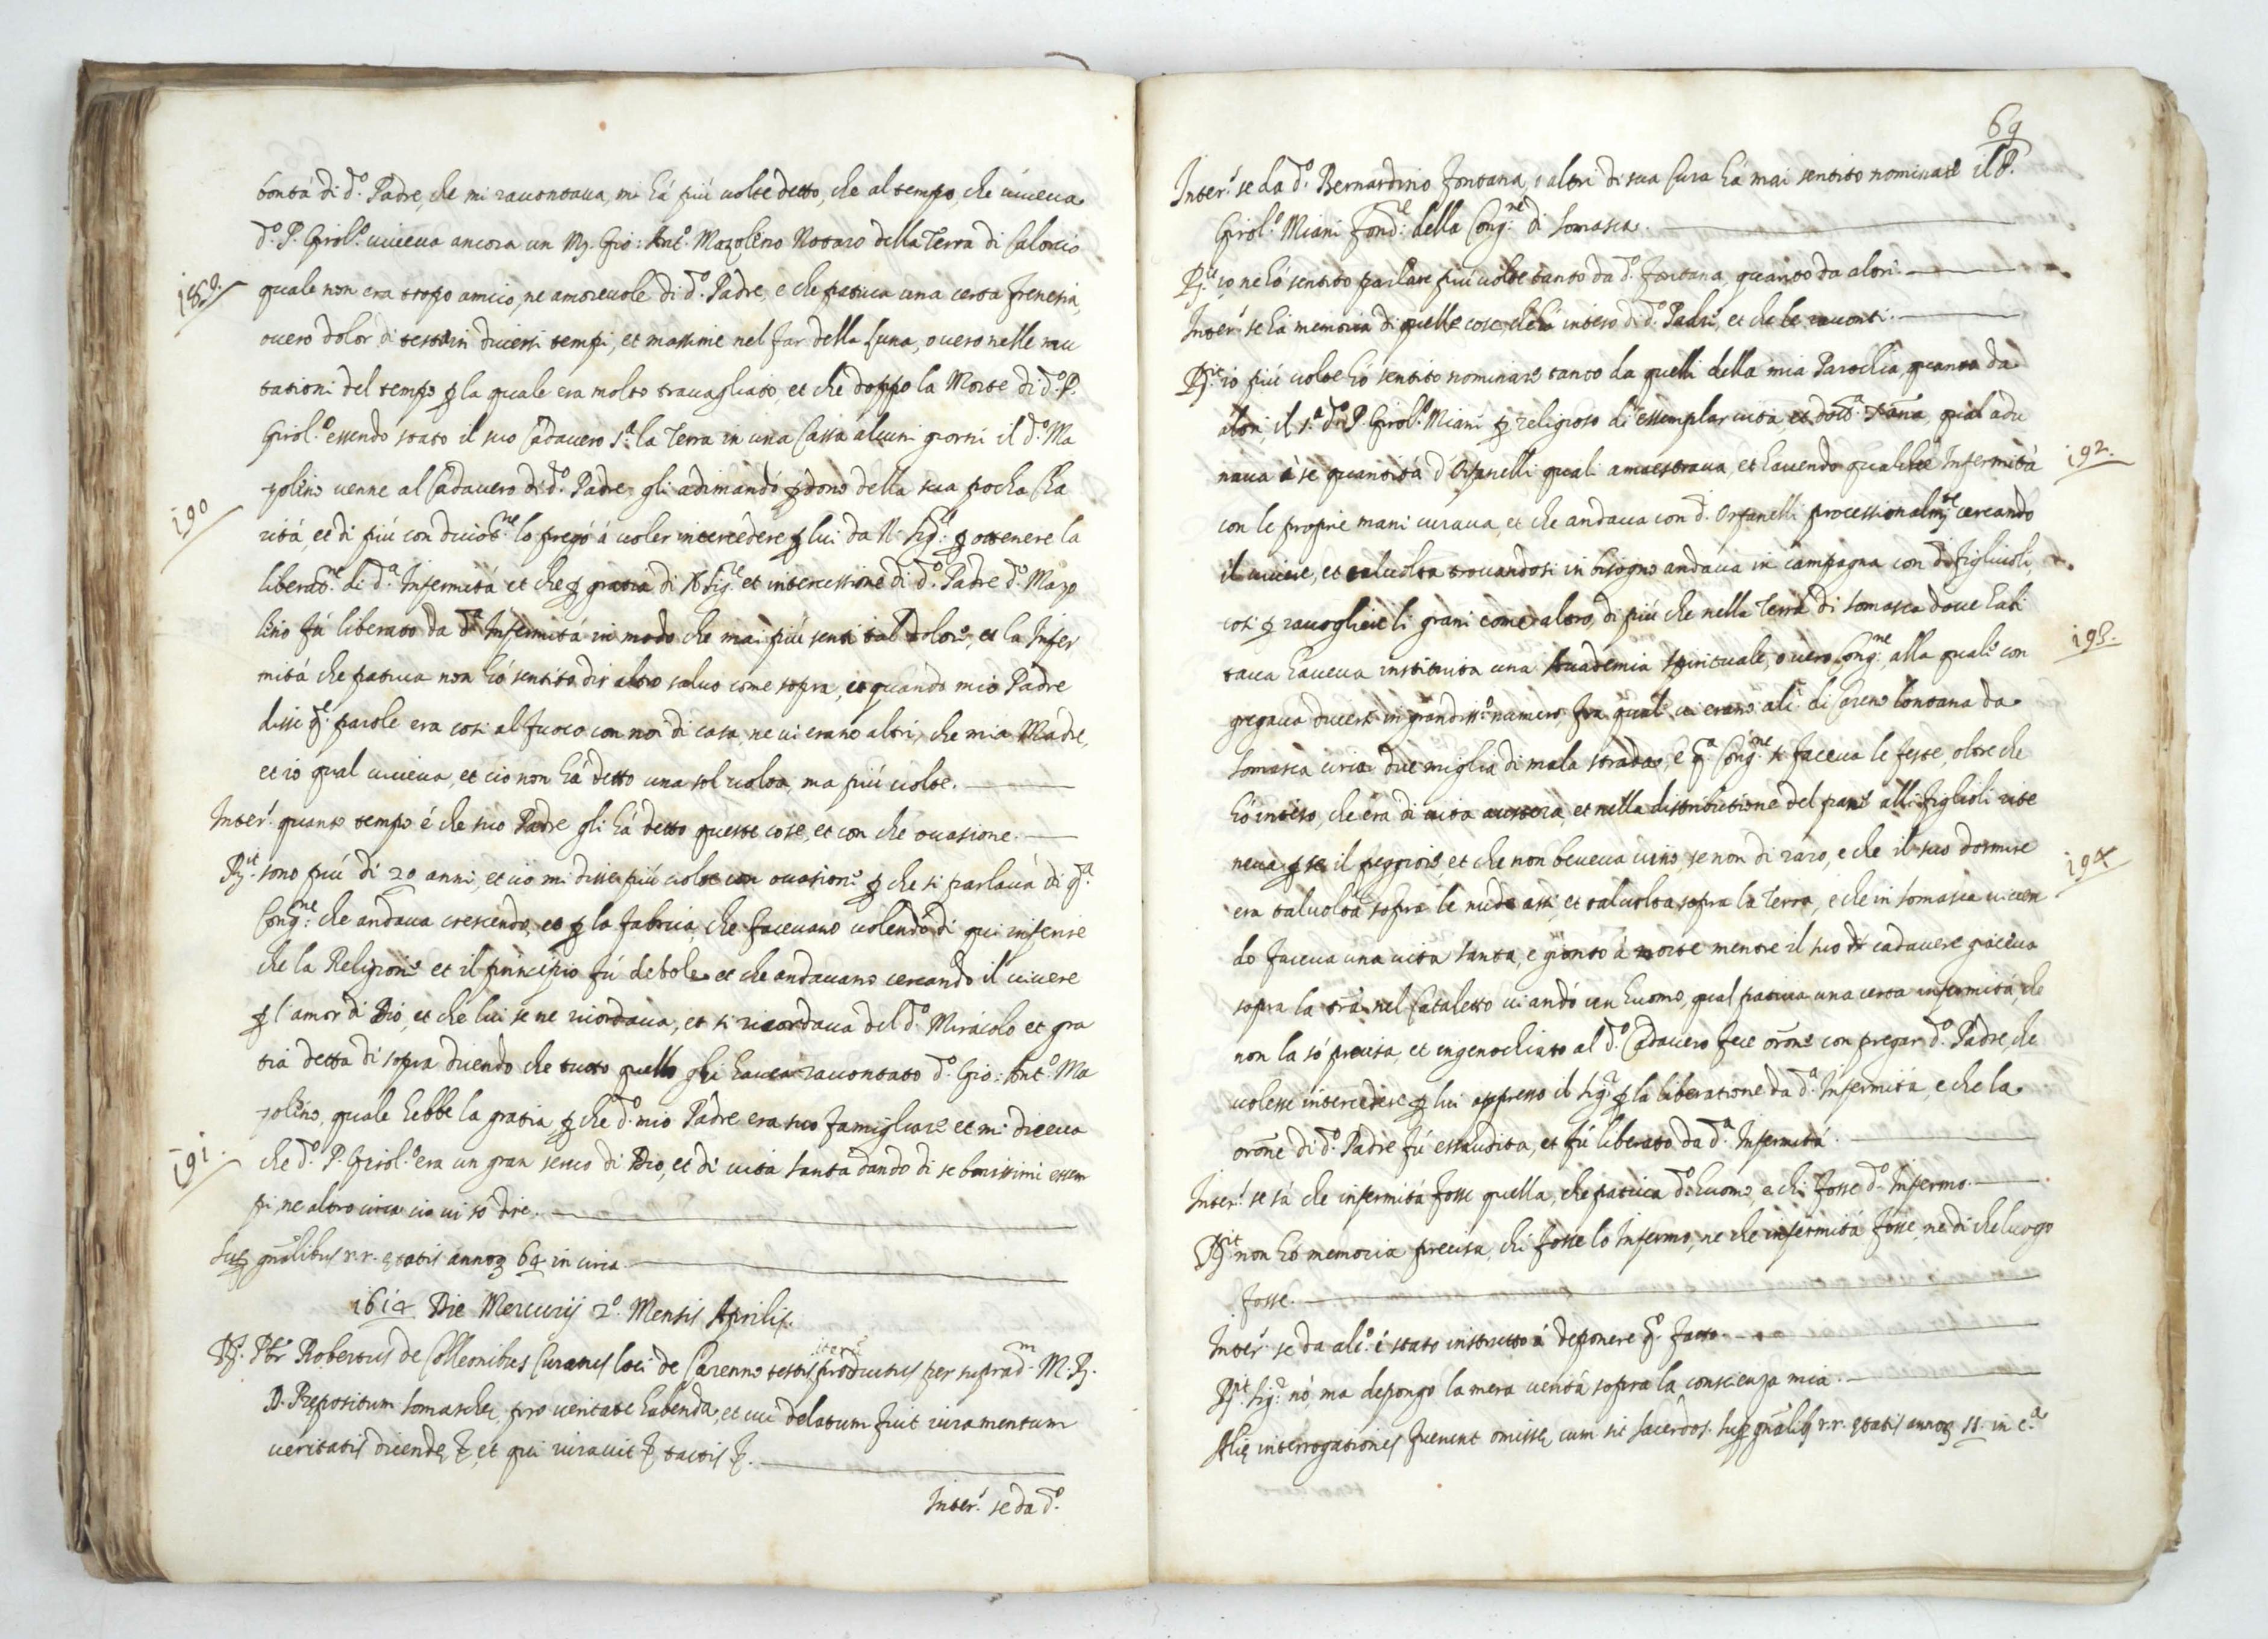 bontà di d.º Padre, che mi racontava, mi hà più volte detto, che al tempo, che viveva
d.º P. Girol.º viveva ancora un M. Gio: Ant.º Mazoleno Notaro della Terra di Calorcio
189.
quale non era tropo amico, ne amorevole di d.º Padre, e che pativa una certa frenesia,
overo dolor di testa in diversi tempi, et massime nel far della Luna, overo nelle mu
tationi del tempo p la quale era molto travagliato, et che doppo la Morte di d.º P.
Girol.º essendo stato il suo Cadavero s.ª la Terra in una Cassa alcuni giorni il d.º Ma
zoleno venne al Cadavero di d.º Padre, gli adimandò pdono della sua pocha Cha
190
rità, et di più con divot.ne lo pregò à voler intercedere p lui da N. Sig.r p ottenere la
liberat.ne di d.ª Infermità et che p gratia di N. Sig.re et intercessione di d.º Padre d.º Mazo
leno fù liberato da d.ª Infermità in modo che mai più sentì tal dolore, et la Infer
mità che pativa non hò sentito dir altro salvo come sopra, et quando mio Padre
disse q.e parole era così al fuoco con noi di casa, ne vi erano altri, che mia Madre,
et io qual viveva, et ciò non hà detto una sol volta, ma più volte.
Inter.º quanto tempo é che suo Padre gli hà detto queste cose, et con che ocasione.
R.it sono più di 20 anni, et ciò mi disse più volte con ocasione p che si parlava di q.ª
Cong.ne che andava crescendo, et p la fabrica, che facevano volendo di qui inferire
che la Religione et il principio fù debole et che andavano cercando il vivere
p l'amor di Dio, et che lui se ne ricordava, et si ricordava del d.º Miracolo et gra
tia detta di sopra dicendo che tutto quello gli haveva racontato d.º Gio: Ant.º Ma
zoleno, quale hebbe la gratia p che d.º mio Padre era suo famigliare et mi diceva
191.
che d.º P. Girol.º era un gran servo di Dio, et di vita santa dando di se bonissimi essem
pi, ne altro circa ciò vi sò dire.
Sup gnãlibus r.r. etatis annoȝ 64 in circa
1614 Die Mercurij 2.º Mensis Aprilis.
R. Pbr Robertus de Colleonibus Curatus loci de Carenno testis productus per suprad.m M. R.
D. Prepositum Somaschę, pro veritate habenda, et cui delatum fuit iuramentum
veritatis dicendę &, et qui iuravit & tactis &.
Inter.º se da d.º
69
Inter.º se da d.º Bernardino Fontana, ò altri di sua Cura hà mai sentito nominare il P.
Girol.º Miani Fond.re della Cong.ne di Somasca.
R.it io ne hò sentito parlare più volte tanto da d.º Fontana, quanto da altri.
Inter.º se hà memoria di quelle cose, che hà inteso di d.º Padre, et che le raconti.
R.it io più volte hò sentito nominare tanto da quelli della mia Parochia, quanto da
altri, il s.ª d.º P. Girol.º Miani p religioso di essemplar vita, qual adu
192.
nava à se quantità d'Orfanelli quali amaestrava, et havendo qualche Infermità
con le proprie mani curava, et che andava con d.i Orfanelli processionalm.te cercando
il vivere, et talvolta trovandosi in bisogno andava in campagna con d.i figliuoli,
così p racogliere li grani come altro, di più che nella Terra di Somasca dove habi
193.
tava haveva instituita una Academia Spirituale, overo Cong.ne, alla quale con
gregava diversi in grandiss.º numero, fra quali vi erano ali di Careno lontana da
Somasca circa due miglia di mala strada, e q.ª Cong.ne si faceva le feste, oltre che
hò inteso, che era di vita austera, et nella distributione del pane alli figlioli rite
neva p se il peggiore, et che non beveva vino, se non di raro, e che il suo dormire
194
era talvolta sopra le nude assi, et talvolta sopra la Terra, e che in Somasca viven
do faceva una vita santa, e gionto à morte mentre il suo cadavere giaceva
sopra la trã nel Cataletto vi andò un huomo, qual pativa una certa infermità, che
non la sò precisa, et ingenochiato al d.º Cadavero fece orõne con pregar d.º Padre, che
volesse intercedere p lui appresso il Sig.r p la liberatione da d.ª Infermità, e che la
orõne di d.º Padre fù essaudita, et fù liberato da d.ª Infermità.
Inter.º se sà che infermità fosse quella, che pativa d.º huomo, e chi fosse d.º Infermo.
R.it non hò memoria precisa, chi fosse lo Infermo, ne che infermità fosse, ne di che luogo
fosse.
Inter.º se da alc.º é stato instrutto à deponere q.º fatto.
R.it Sig.r nò, ma depongo la mera verità sopra la conscienza mia.
Alię interrogationes fuerunt omissę cum sit sacerdos. Sup gnãlib9 r.r. etatis annoȝ 55. in c.ª